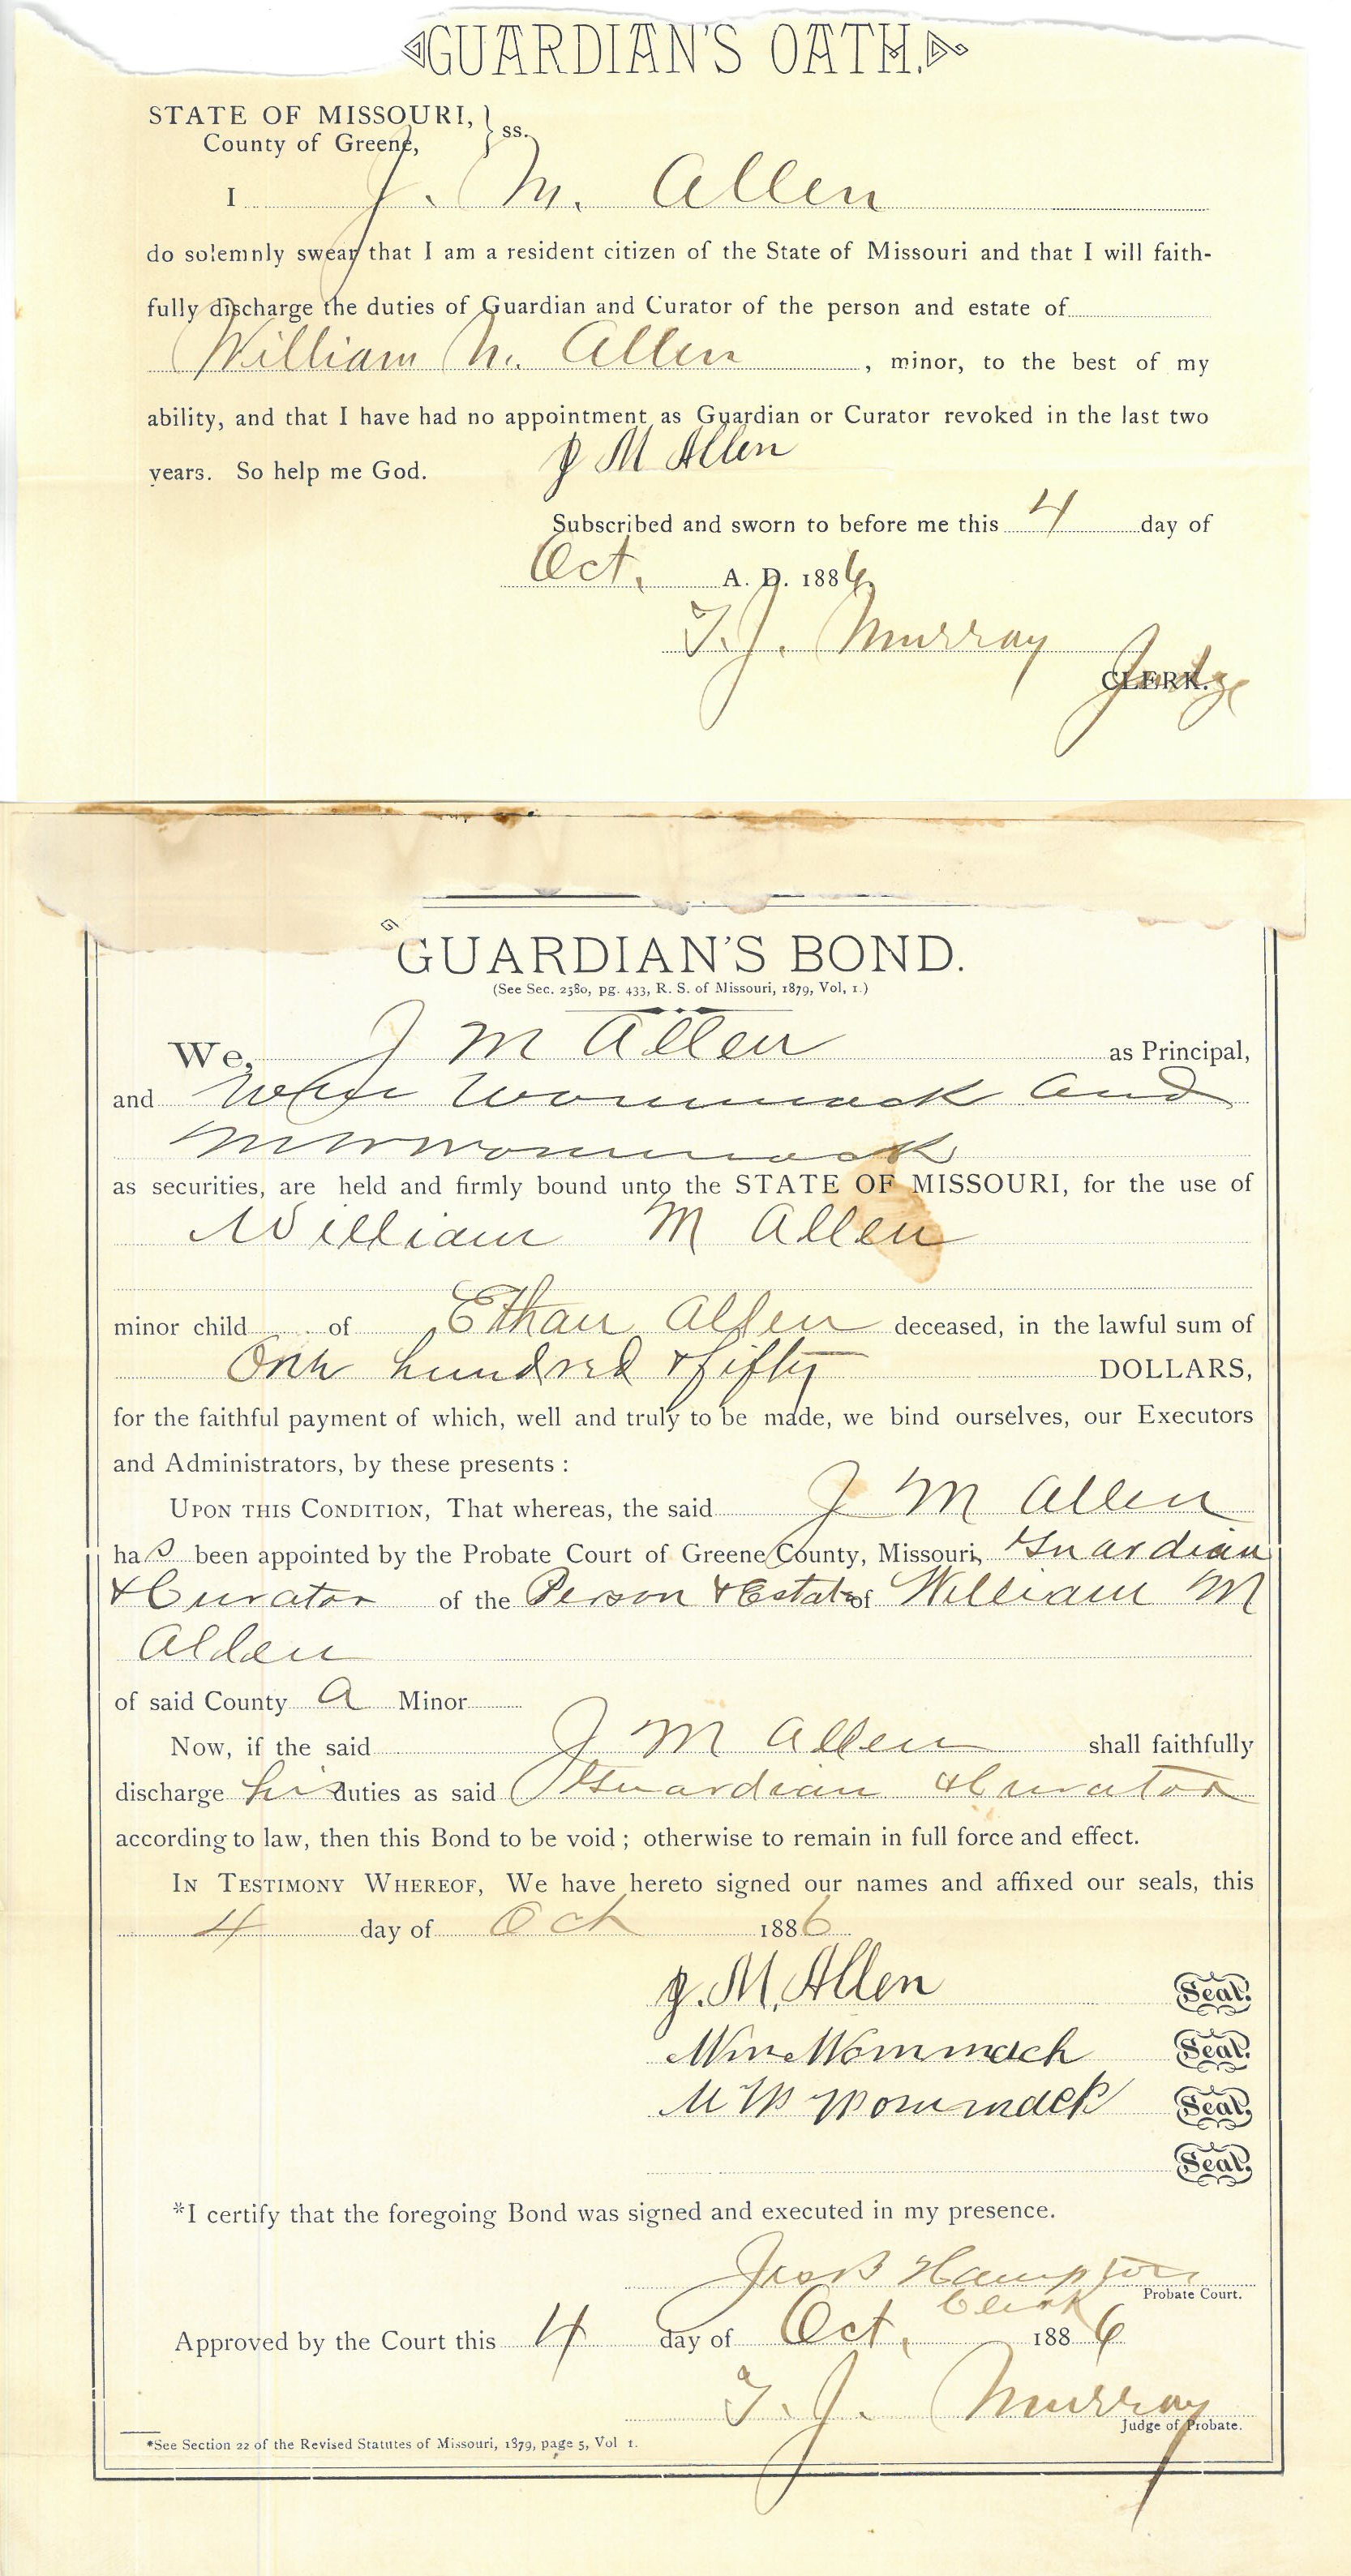 GUARDIAN'S OATH.
STATE OF MISSOURI,
County of Greene, } ss.
I J. M. Allen
do solemnly swear that I am a resident citizen of the State of Missouri and that I will faith-
fully discharge the duties of Guardian and Curator of the person and estate of
William M. Allen, minor, to the best of my
ability, and that I have had no appointment as Guardian or Curator revoked in the last two
years. So help me God. J M Allen
Subscribed and sworn to before me this 4 day of
Oct. A. D. 1886
T. J. Murray
CLERK. Judge
GUARDIAN'S BOND.
(See Sec. 2580, pg. 433, R. S. of Missouri, 1879, Vol, 1.)
We, J M Allen as Principal,
and Wommack and
M W Wommack
as securities, are held and firmly bound unto the STATE OF MISSOURI, for the use of
William M Allen
minor child of Ethan Allen deceased, in the lawful sum of
One hundred & fifty DOLLARS,
for the faithful payment of which, well and truly to be made, we bind ourselves, our Executors
and Administrators, by these presents :
UPON THIS CONDITION, That whereas, the said J M Allen
has been appointed by the Probate Court of Greene County, Missouri, Guardian
& Curator of the Person & Estate of William M
Allen
of said County a Minor
Now, if the said J M Allen shall faithfully
discharge his duties as said Guardian & Curator
according to law, then this Bond to be void ; otherwise to remain in full force and effect.
IN TESTIMONY WHEREOF, We have hereto signed our names and affixed our seals, this
4 day of Oct 1886
J. M. Allen Seal.
Wm Wommack Seal.
M W Wommack Seal.
Seal.
*I certify that the foregoing Bond was signed and executed in my presence.
Jas B Hampton
Clerk Probate Court.
Approved by the Court this 4 day of Oct. 1886
T. J. Murray
Judge of Probate.
*See Section 22 of the Revised Statutes of Missouri, 1879, page 5, Vol 1.